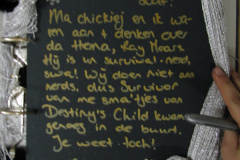 Ma chickiej en ik wa-
ren aan t denken over
da thema, Ray Mears
Hij is un survival-nerd,
swa! Wij doen niet aan
nerds, dus Survivor
van me sma'tjes van
Destiny's Child kwam
genoeg in de buurt.
Je weet toch!